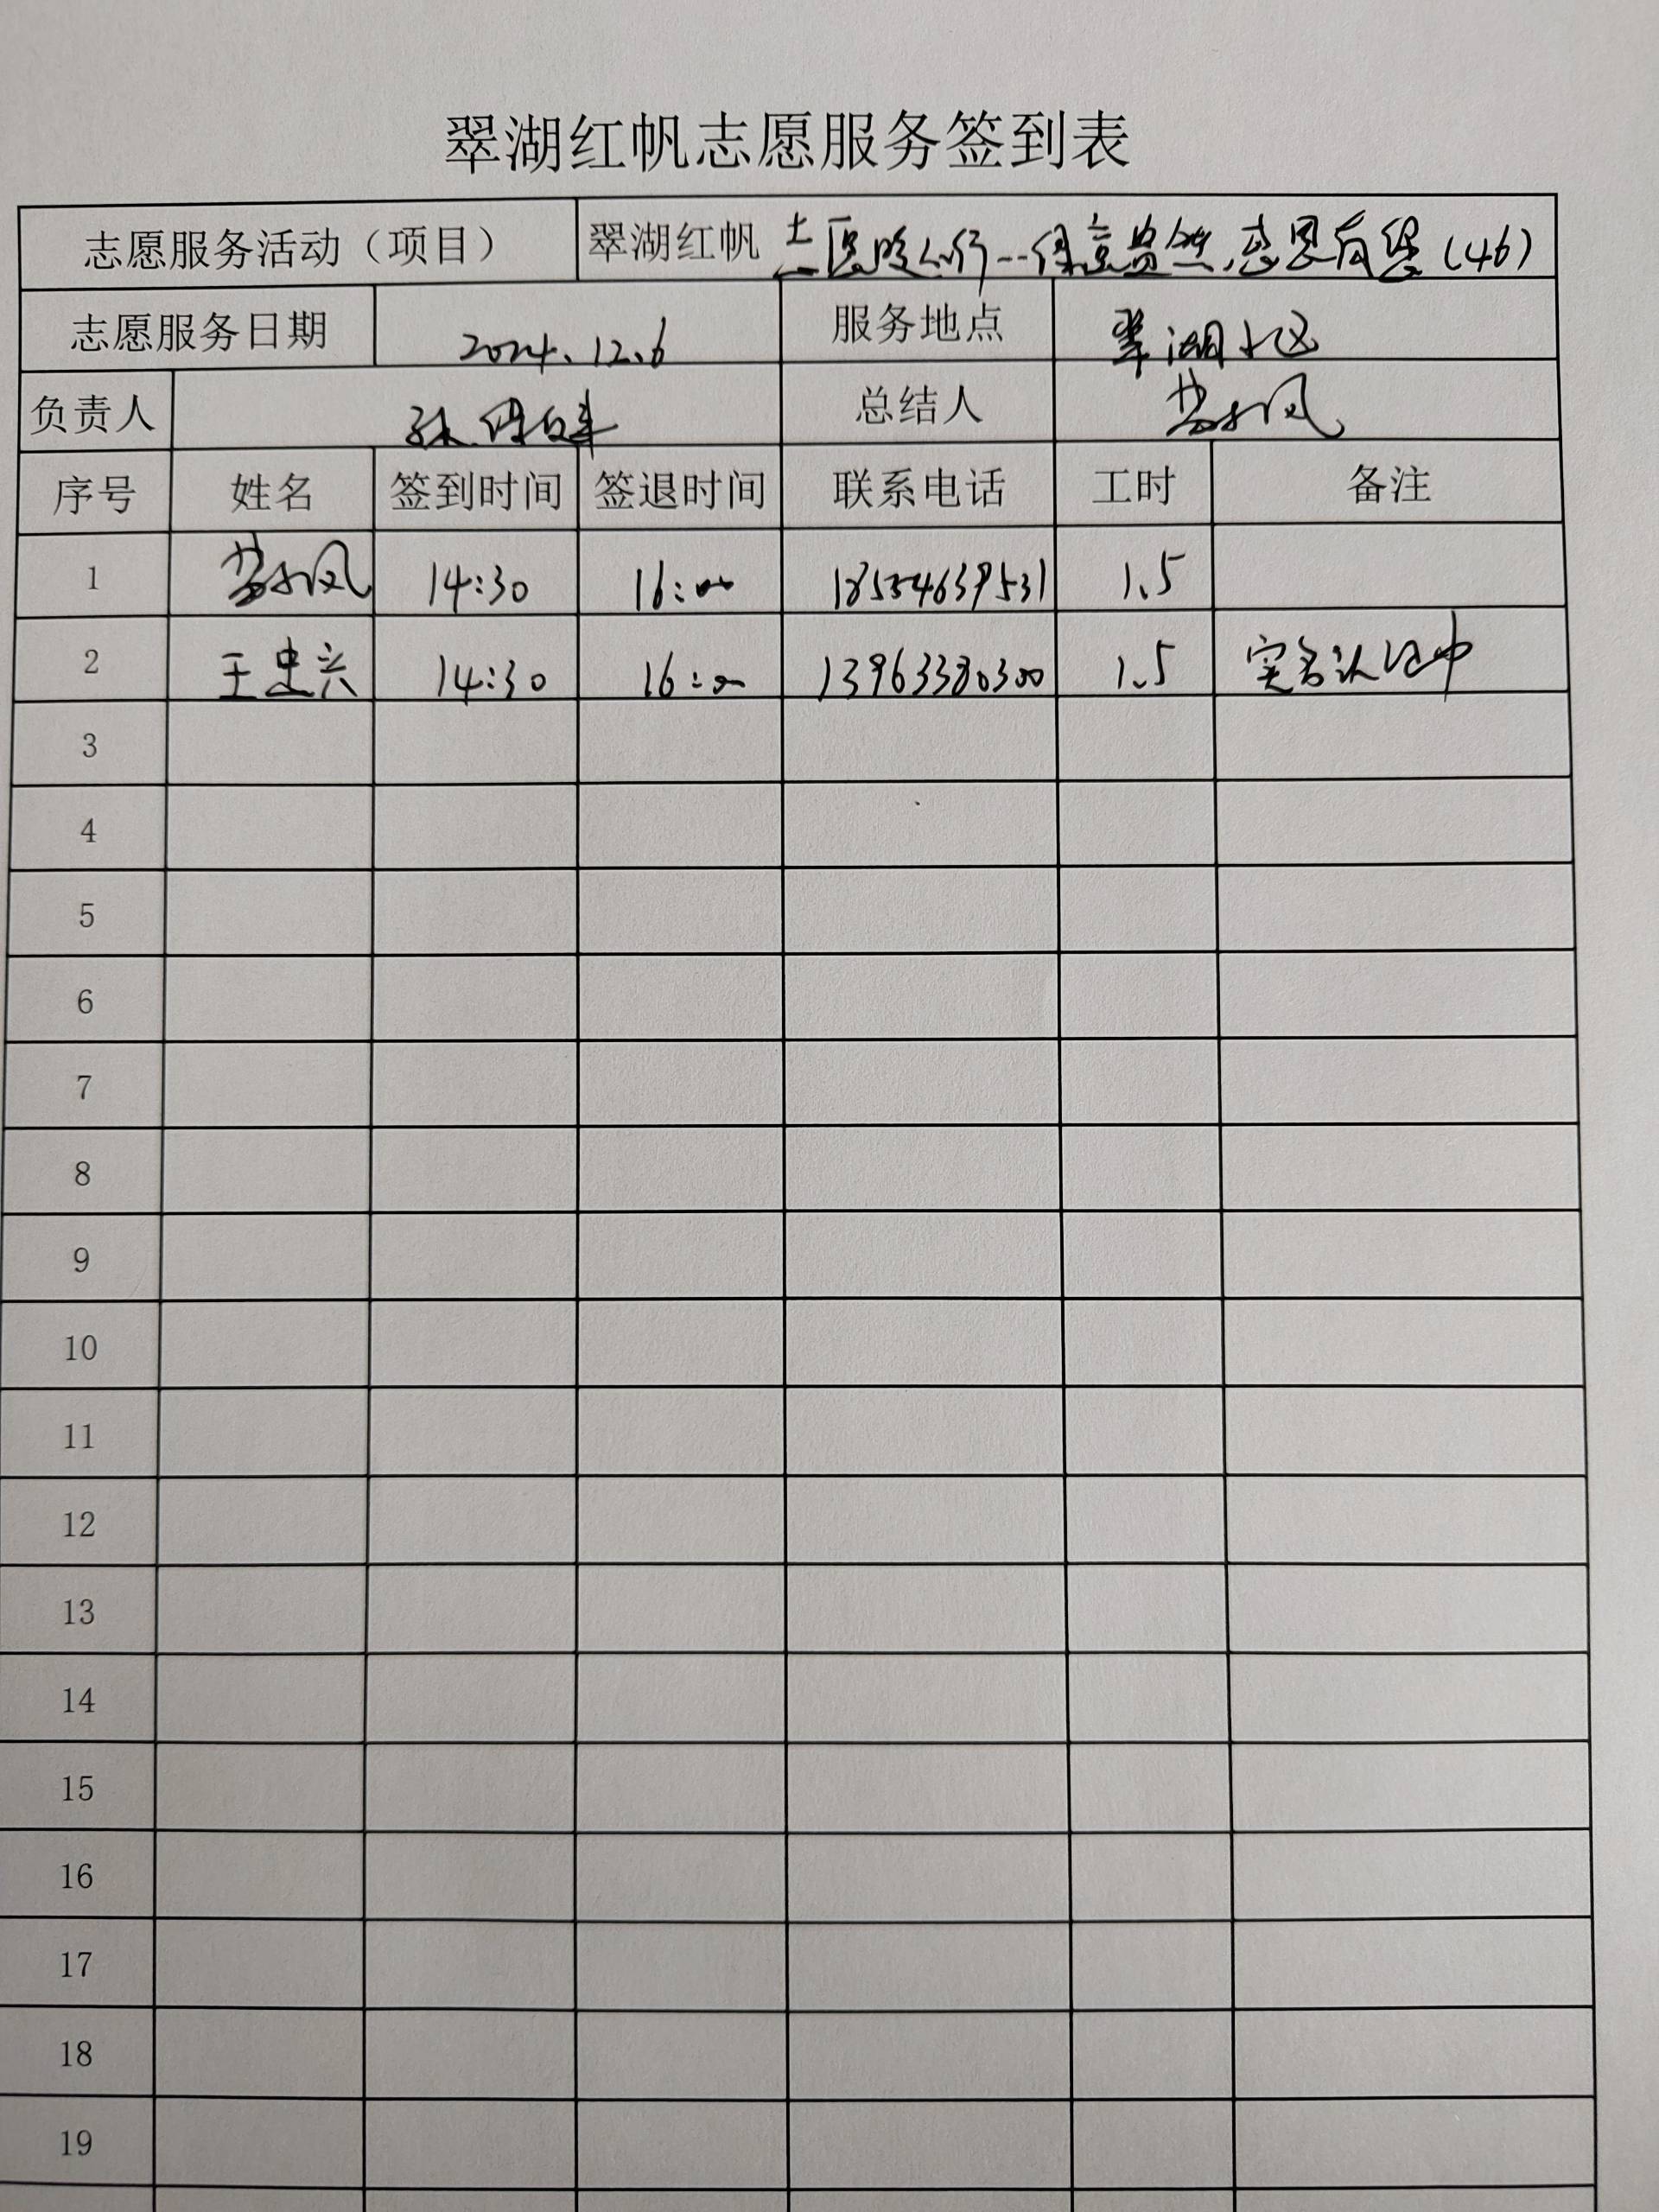 翠湖红帆志愿服务签到表
志愿服务活动（项目） 翠湖红帆 (46)
志愿服务日期 2024.12.6 服务地点 翠湖小区
负责人 孙 总结人
序号 姓名 签到时间 签退时间 联系电话 工时 备注
1 14:30 16:00 18554639531 1.5
2 王忠兴 14:30 16:00 13963380300 1.5 实名认证中
3
4
5
6
7
8
9
10
11
12
13
14
15
16
17
18
19